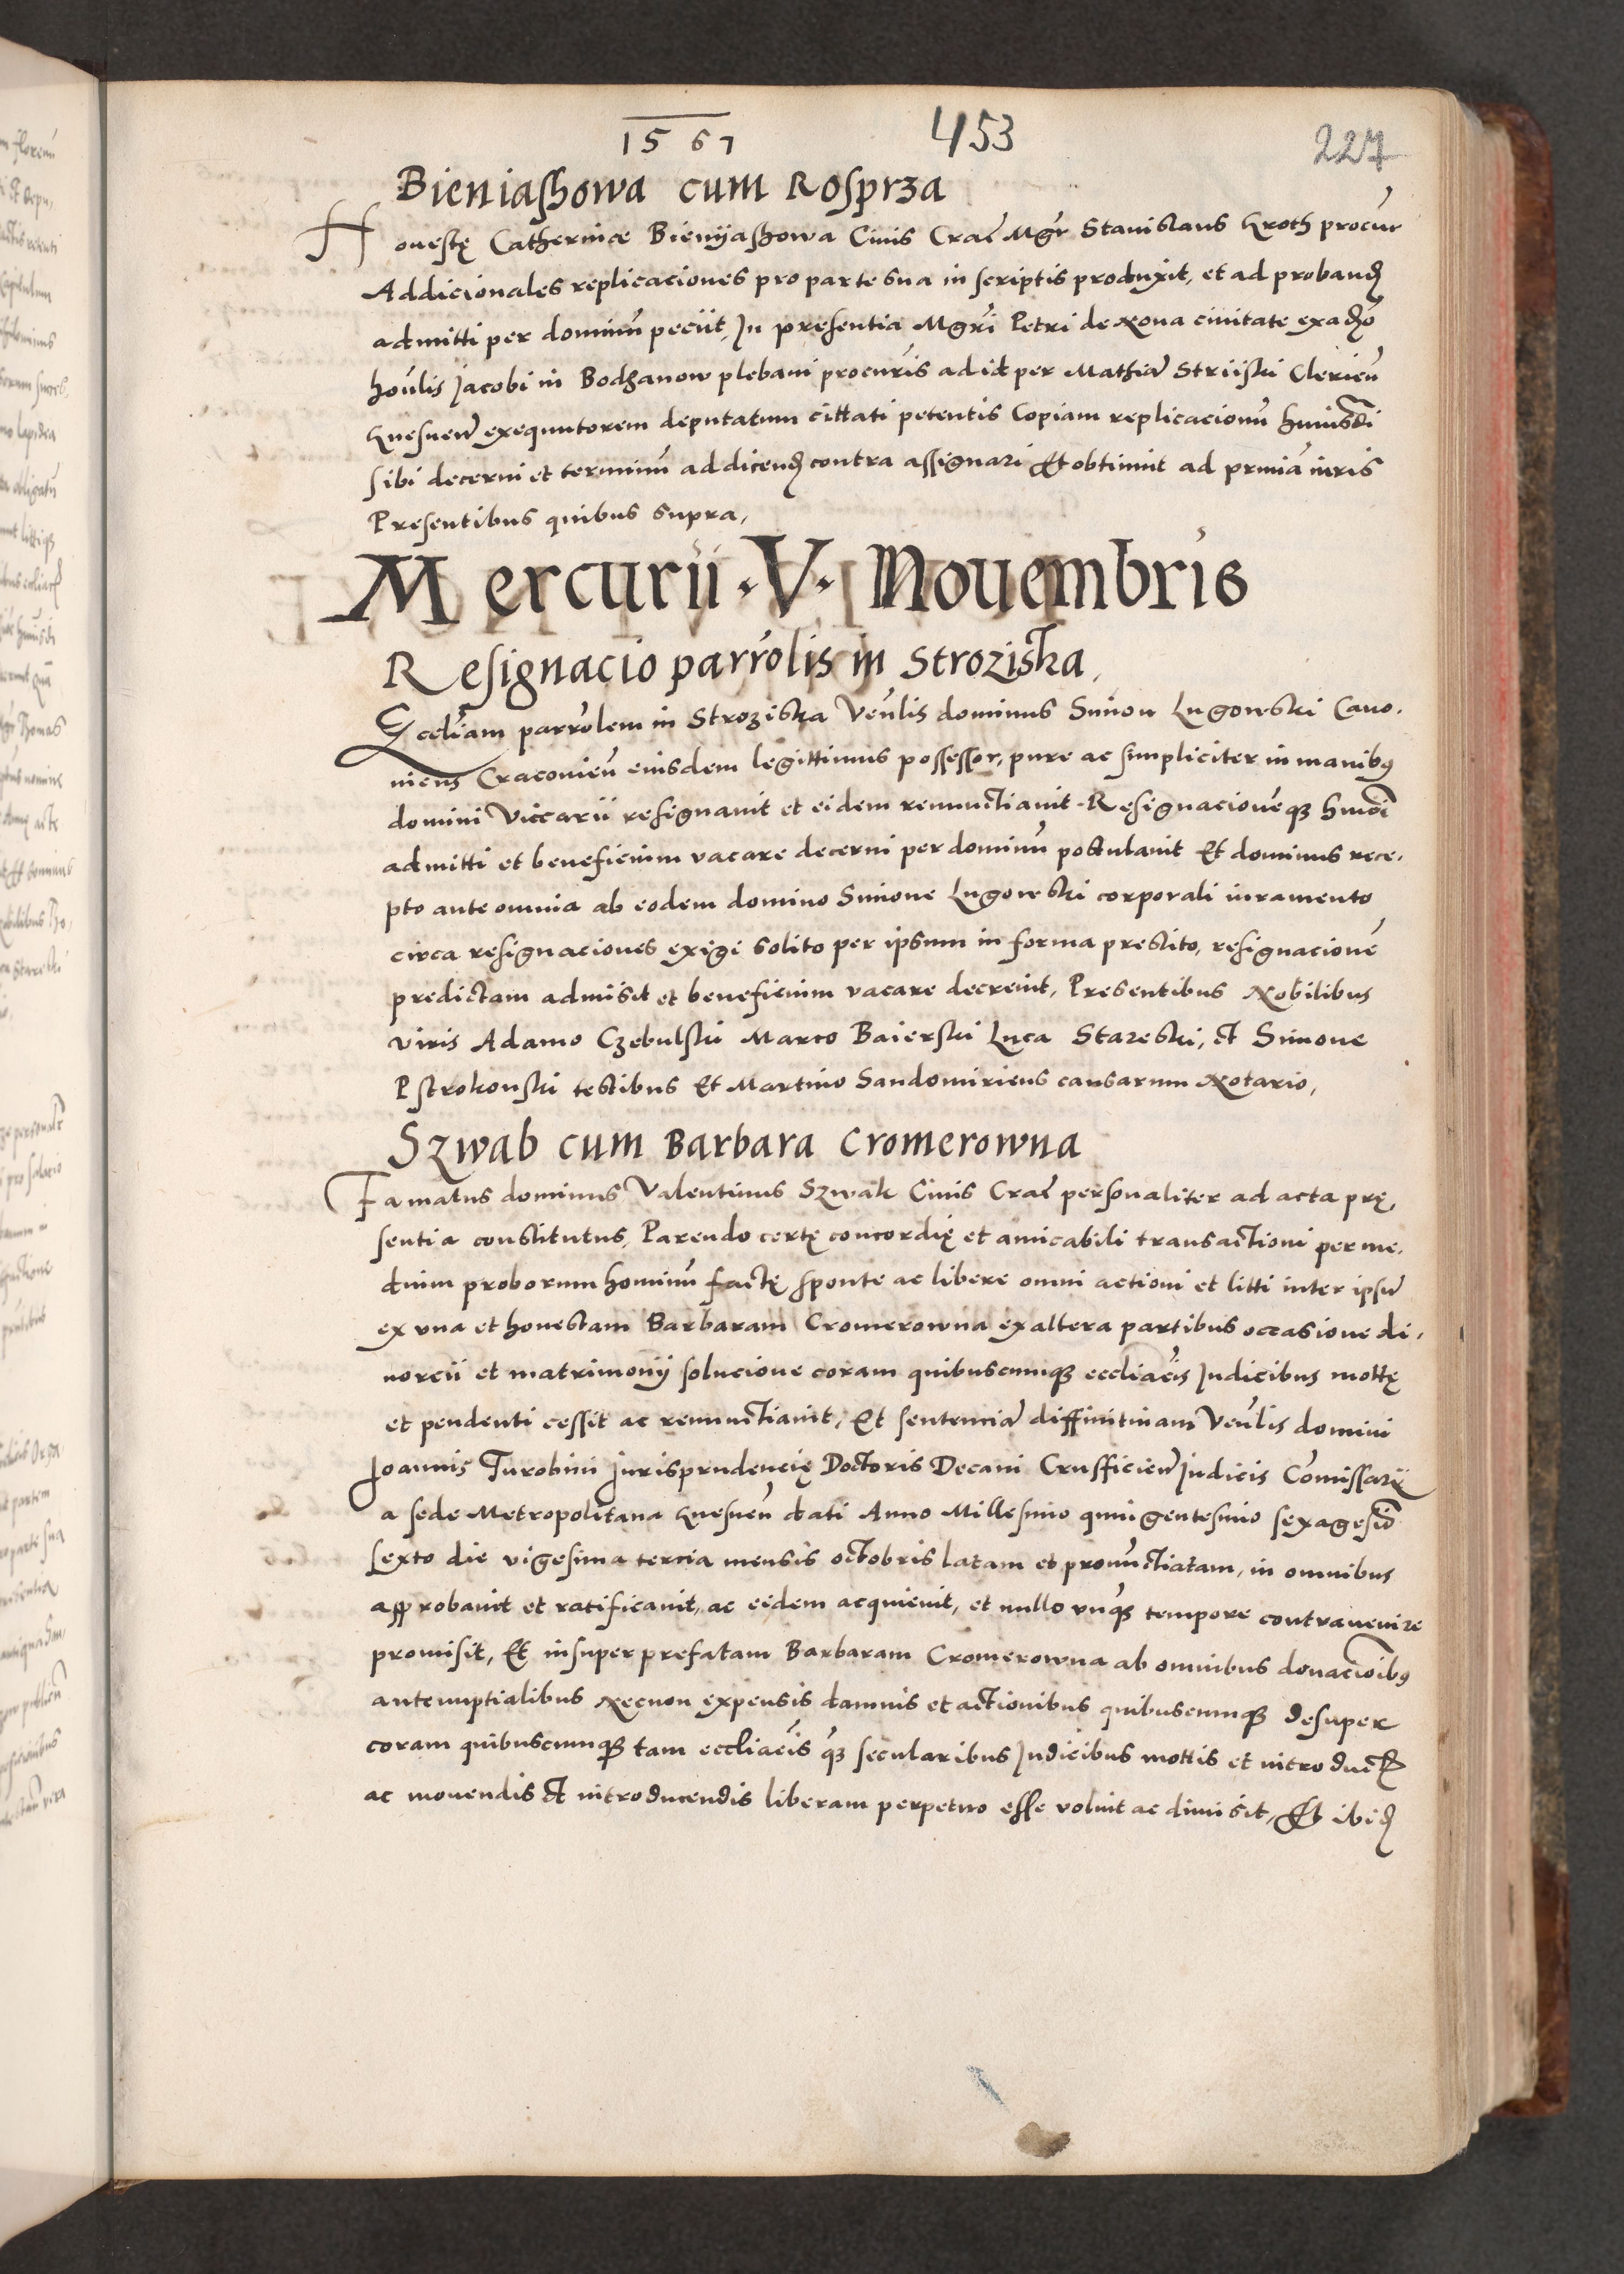 1567 453 227
Bieniashowa cum Rosprza
Honestę Catherinae Bienyashowa Civis Crac̄ Mgr̄ Stanislaus Groth procur̄
Addicionales replicaciones pro parte sua in scriptis produxit, et ad proband
admitti per dominū peciit, In presentia Mgr̄i Petri de Nova civitate ex adō
hoūlis Jacobi in Bodzanow plebani procurīs ad id per Mathiā Striiski Clericū
Gnesneñ exequutorem deputatum cittati petentis Copiam replicacionū huiusdi
sibi decerni et terminū ad dicend contra assignari Et obtinuit ad prmiā iuris
Presentibus quibus supra,
Mercurii · V · Novembris
Resignacio parrōlis in Stroziska,
Eccl̄iam parrōlem in Stroziska Veñlis dominus Simon Lugowski Cano-
nicus Cracovieñ eiusdem legittimus possessor, pure ac simpliciter in manibꝯ
domini Viccarii resignavit et eidem renunctiavit. Resignacionēqꝫ hmōi
admitti et beneficium vacare decerni per dominū postulavit Et dominus rece-
pto ante omnia ab eodem domino Simone Lugowski corporali iuramento
circa resignaciones exigi solito per ipsum in forma prestito, resignacionē
predictam admisit et beneficium vacare decrevit, Presentibus Nobilibus
viris Adamo Czebulski Marco Baierski Luca Stareski, et Simone
Pstrokonski testibus Et Martino Sandomiriens causarum Notario,
Szwab cum Barbara Cromerowna
Famatus dominus Valentinus Szwak Civis Crac̄ personaliter ad acta prę-
sentia constitutus, Parendo certę concordię et amicabili transactioni per me-
dium proborum hominū factę sponte ac libere omni actioni et litti inter ipsū
ex una et honestam Barbaram Cromerowna ex altera partibus occasione di-
vorcii et matrimonij solucione coram quibuscumqꝫ eccl̄iacīs Judicibus mottę
et pendenti cessit ac renunctiavit, Et sentenciā diffinitivam Veñlis domini
Joannis Turobini Jurisprudencię Doctoris Decani Crusficieñ Judicis Comissarij
a sede Metropolitana Gnesneñ dati Anno Millesimo quingentesimo sexagesiō
sexto die vigesima tercia mensis octobris latam et pronūctiatam, in omnibus
approbavit et ratificavit, ac eidem acquievit, et nullo unqꝫ tempore contravenire
promisit, Et insuper prefatam Barbaram Cromerowna ab omnibus donacioībꝯ
antenuptialibus Necnon expensis damnis et actionibus quibuscumqꝫ desuper
coram quibuscumqꝫ tam eccl̄iacīs qꝫ secularibus Judicibus mottis et introduct
ac movendis et introducendis liberam perpetuo esse voluit ac dimisit, Et ibid